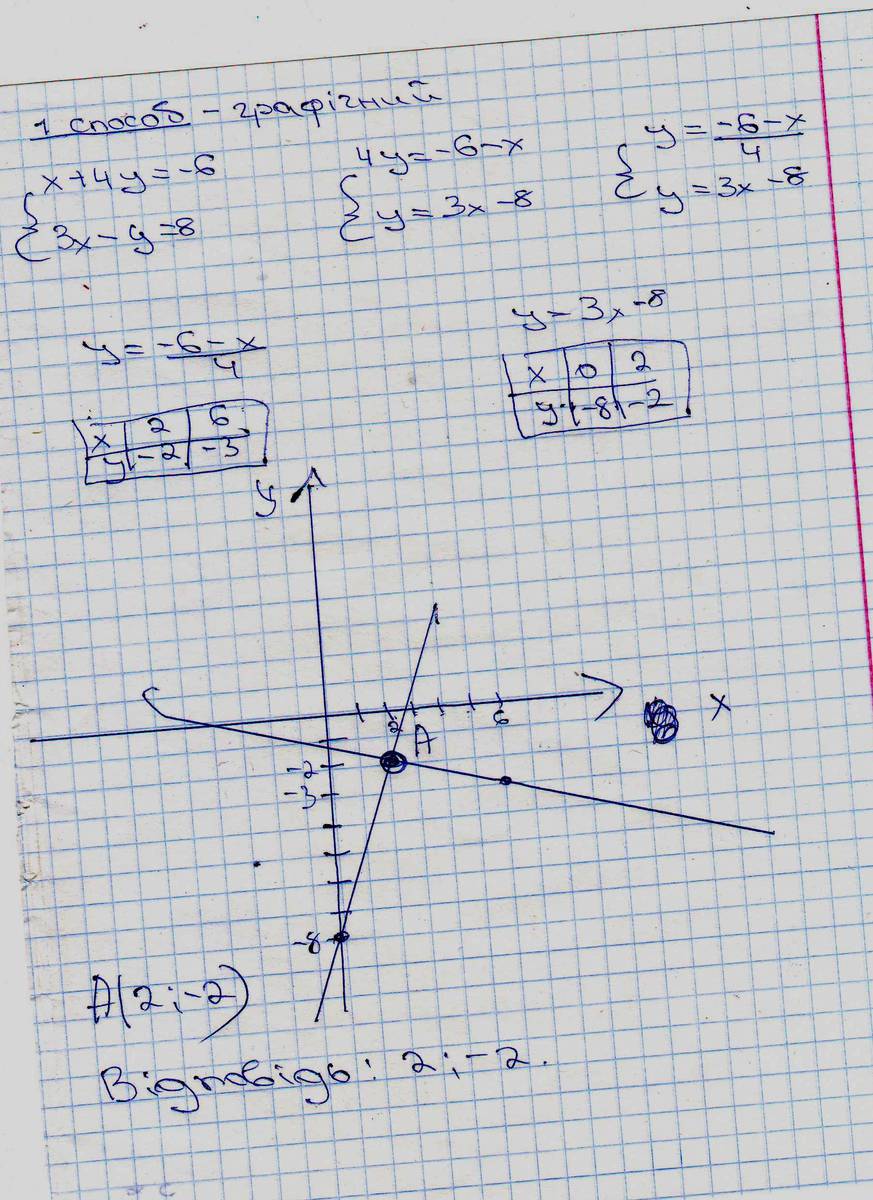 1 способ - графічний
{ x+4y=-6
3x-y=8
{ 4y=-6-x
y=3x-8
{ y=-6-x/4
y=3x-8
y=-6-x/4
x 2 6
y -2 -3
y=3x-8
x 0 2
y -8 -2
y
2 6 x
A
-2
-3
-8
A(2;-2)
Відповідь: 2;-2.